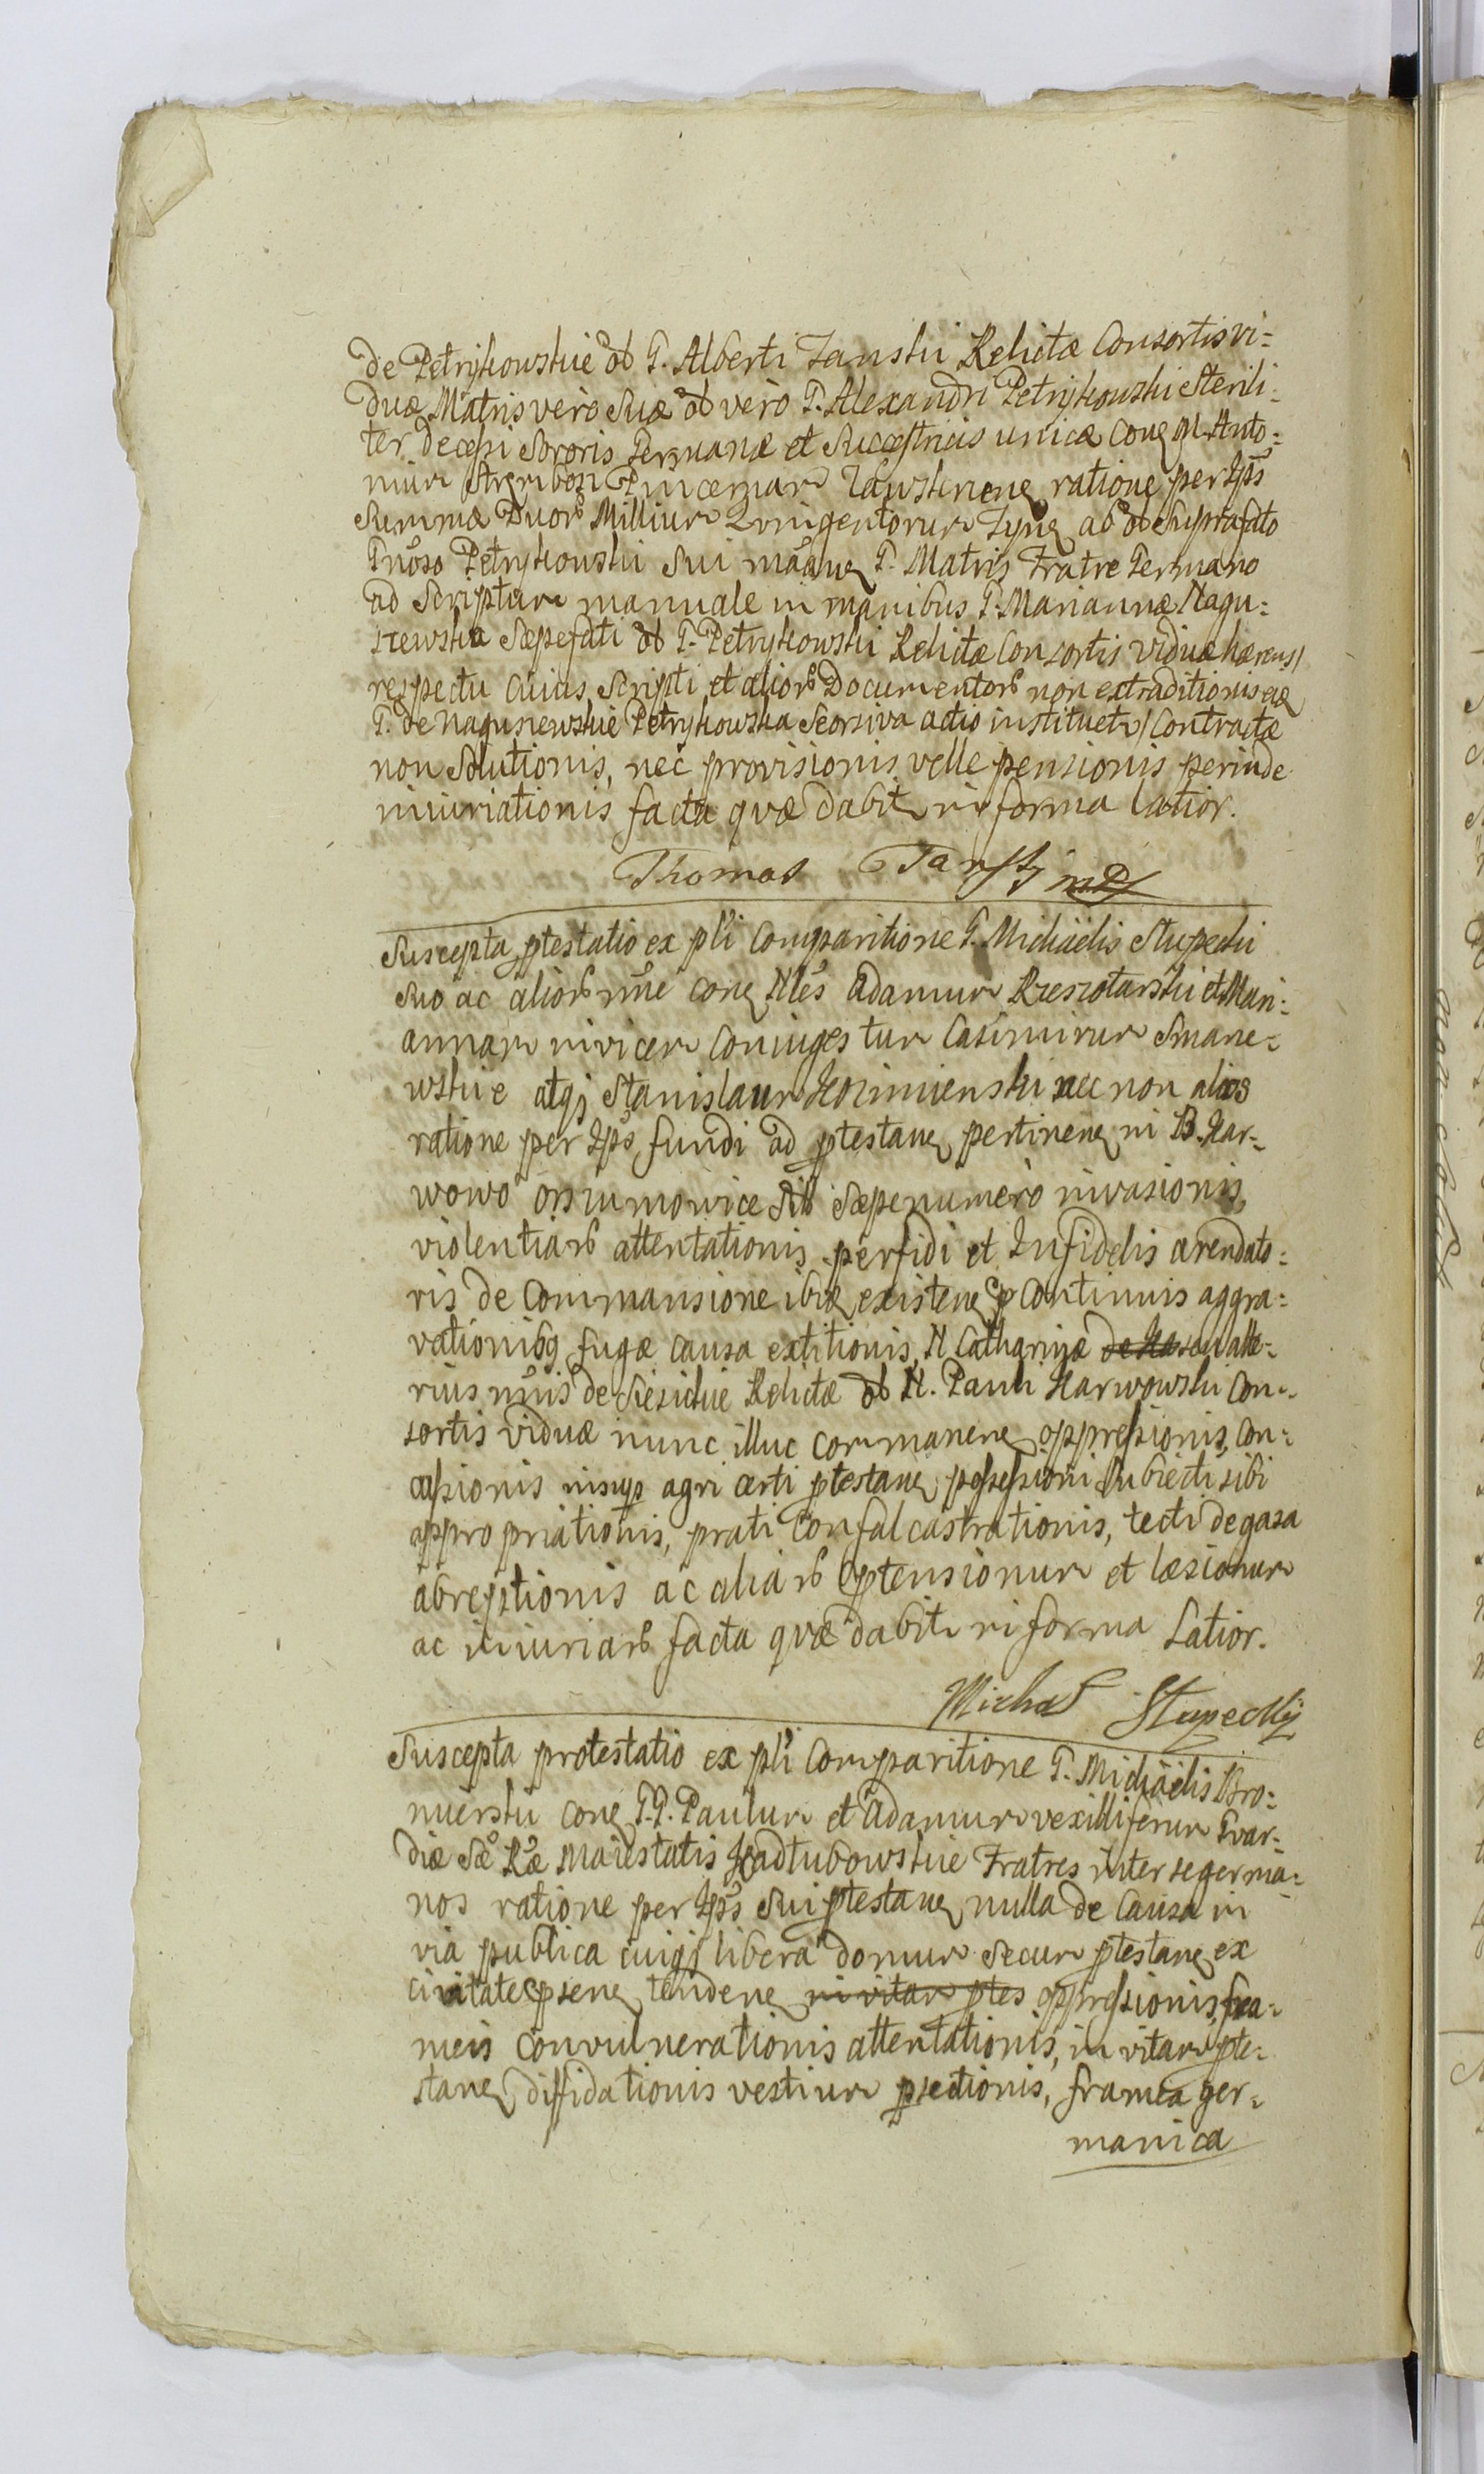 de Petrykowskie ol G. Alberti Janski Relictæ Consortis vi=
duæ Matris verò Suæ ol verò G. Alexandri Petrykowski Sterili=
ter decessi Sororis Germanæ et Successtricis unicæ conq M. Anto=
nium Pincernam ratione per Ips
Summæ Duorb Millium Quingentorum ab ol Suprafato
Gnoso Petrykowski Sui G. Matris Fratre Germano
ad Scriptum manuale in manibus G. Mariannæ Nagu=
szewska Sæpefati ol G. Petrykowski Relictæ Consortis viduæ hærens/
respectu cuius Scripti et aliorb Documentorb non extraditionis eæ
G. de Naguszewskie Petrykowska Seorsiva actio instituetr/ Contractæ
non Solutionis, nec provisionis velle pensionis perinde
iniuriationis facta quæ dabitr in forma latior.
Thomas Jansky mp
Suscepta ptestatio ex pli Comparitione G. Michäelis Stupecki
Suo ac aliorb nne conq Nles Adamum et Mari=
annam invicem Coniuges tum Casimirum Smane=
wskie atqj Stanislaum nec non alios
ratione per Ips fundi ad ptestanq pertinenq in B. Kar=
wowo Sib Sæpenumerò invasionis,
violentiarb attentationis perfidi et Infidelis arendato=
ris de Commansione ibiq existenq p Continuis aggra=
vationibq fugæ causa extitionis, N Catharinæ
rius nnis de Relictæ ol N. Pauli Karwowski Con=
sortis viduæ nunc illuc commanenq oppressionis, con=
cussionis insup agri certi ptestanq possessioni Subiecti sibi
appropriationis, prati Confalcastrationis, tecti de gaza
abreptionis ac aliarb ptensionum et læsionum
ac iniuriarb facta quæ dabitr in forma Latior.
Michał Stupecky
Suscepta protestatio ex pli Comparitione G. Michäelis Bro=
nierski conq G.G. Paulum et Adamum vexilliferum Gvar=
diæ Sæ Ræ Maiestatis Fratres inter se germa=
nos ratione per Ips Sui ptestanq nulla de Causa in
via publica cuiqj libera domum Secum ptestanq ex
civitate tendenq in vitam ptes oppressionis, fra=
meis convulnerationis attentationis, in vitam pte=
stanq diffidationis vestium psectionis, framea ger=
manica